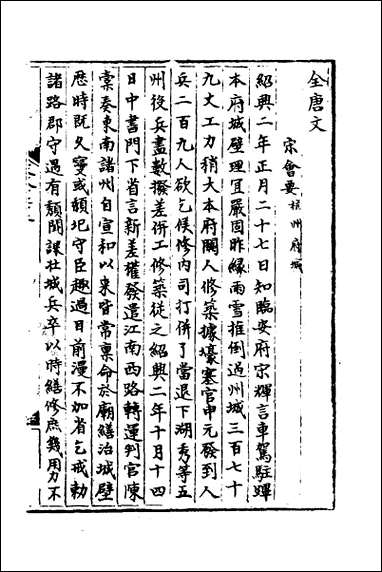 全唐文
宋會要 杭州府城
紹興二年正月二十七日知臨安府宋輝言車駕駐蹕
本府城壁理宜嚴固昨緣雨雪摧倒過州城三百七十
九丈工力稍大本府闕人修築據壕寨官申元發到人
兵二百九人欲乞候修內司打併了當退下湖秀等五
州役兵盡數撥差併工修築從之紹興二年十月十四
日中書門下省言新差權發遣江南西路轉運判官陳
棠奏東南諸州自宣和以來皆常稟命於廟繕治城壁
歷時既久寖或頹圮守臣趣過目前漫不加省乞戒勅
諸路郡守遇有頹闕課壯城兵卒以時繕修庶幾用力不